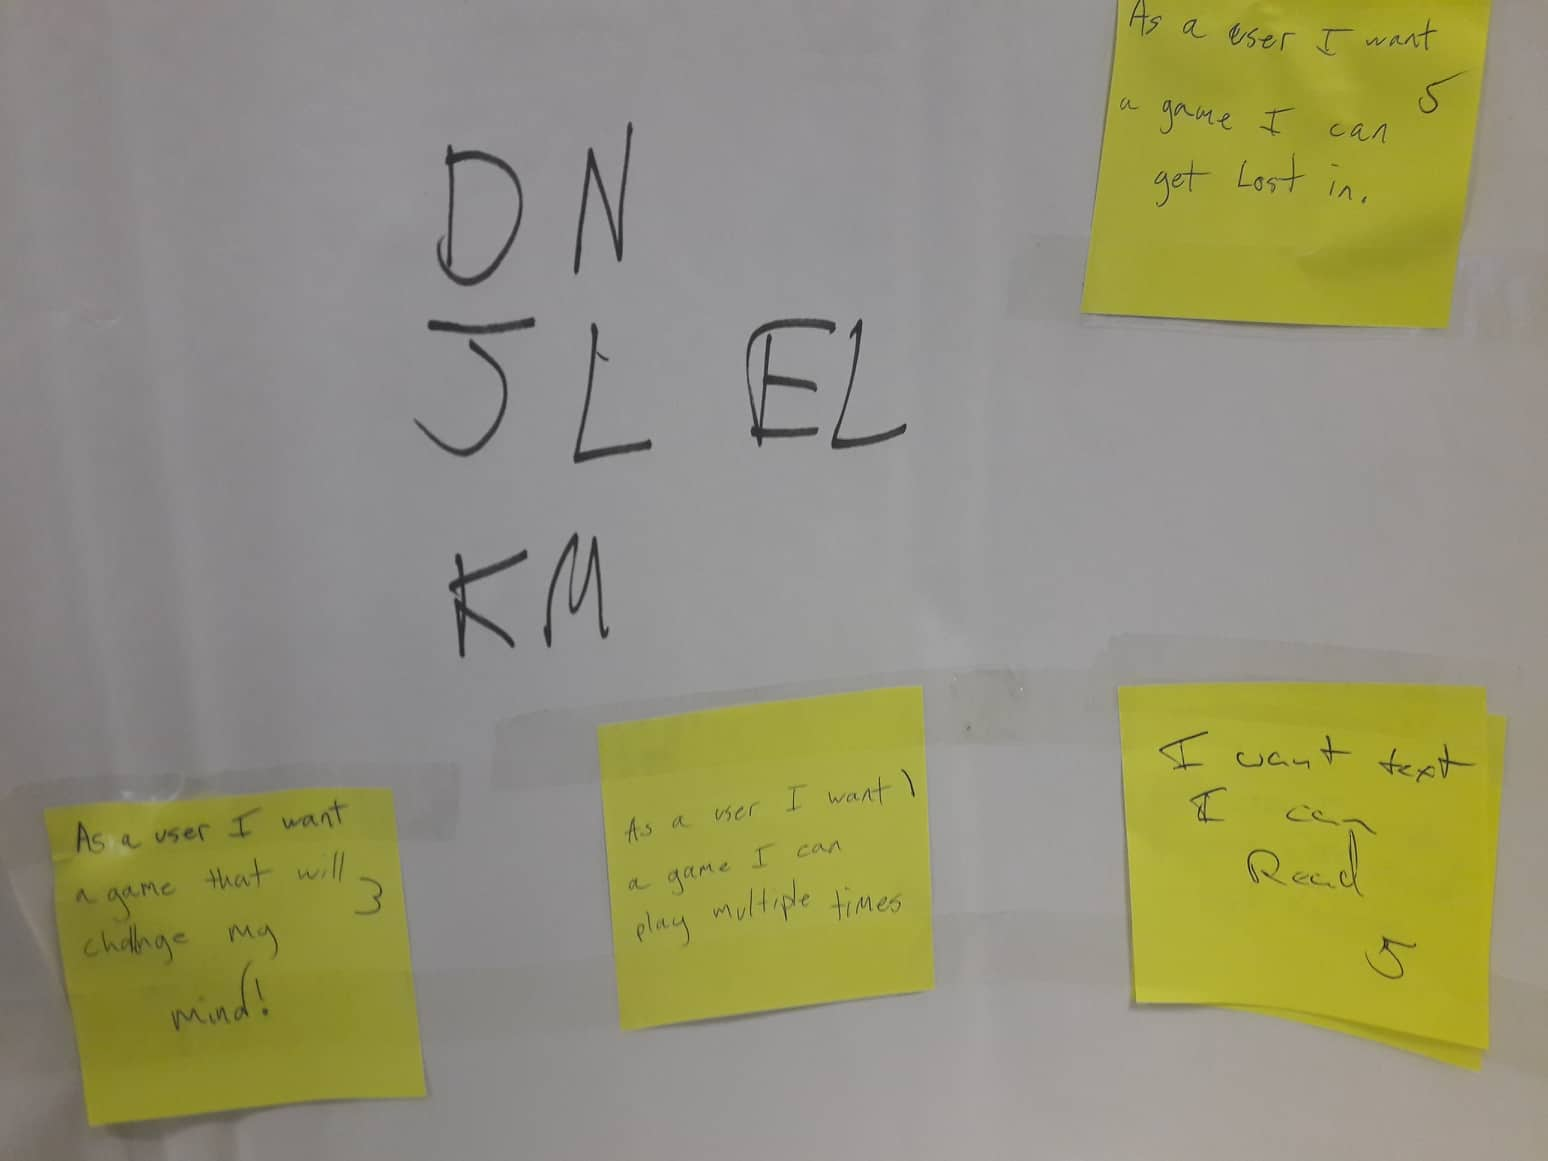 As a user I want
a game I can 5
get Lost in.
D N
J L EL
KM
As a user I want
a game that will 3
change my
mind!
As a user I want 1
a game I can
play multiple times
I want text
I can
Read
5